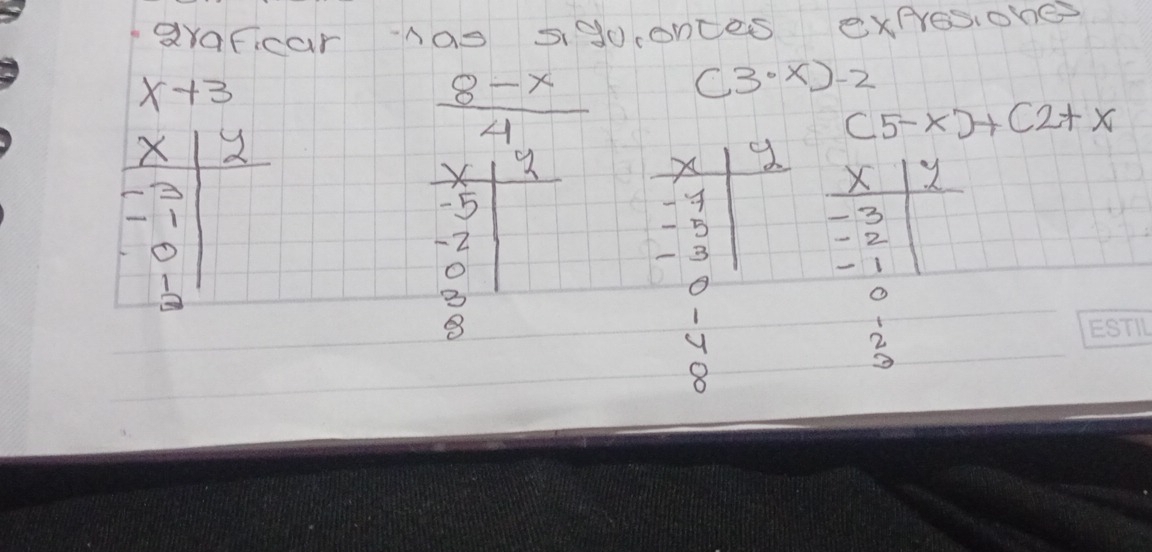 graficar las siguientes expresiones
x+3
x | y
-3
-1
0
1
3
8-x
4
x | y
-5
-2
0
3
8
(3·x)-2
x | y
-7
-5
-3
0
1
4
8
(5-x)+(2+x
x | y
-3
-2
-1
0
1
2
3
ESTIL